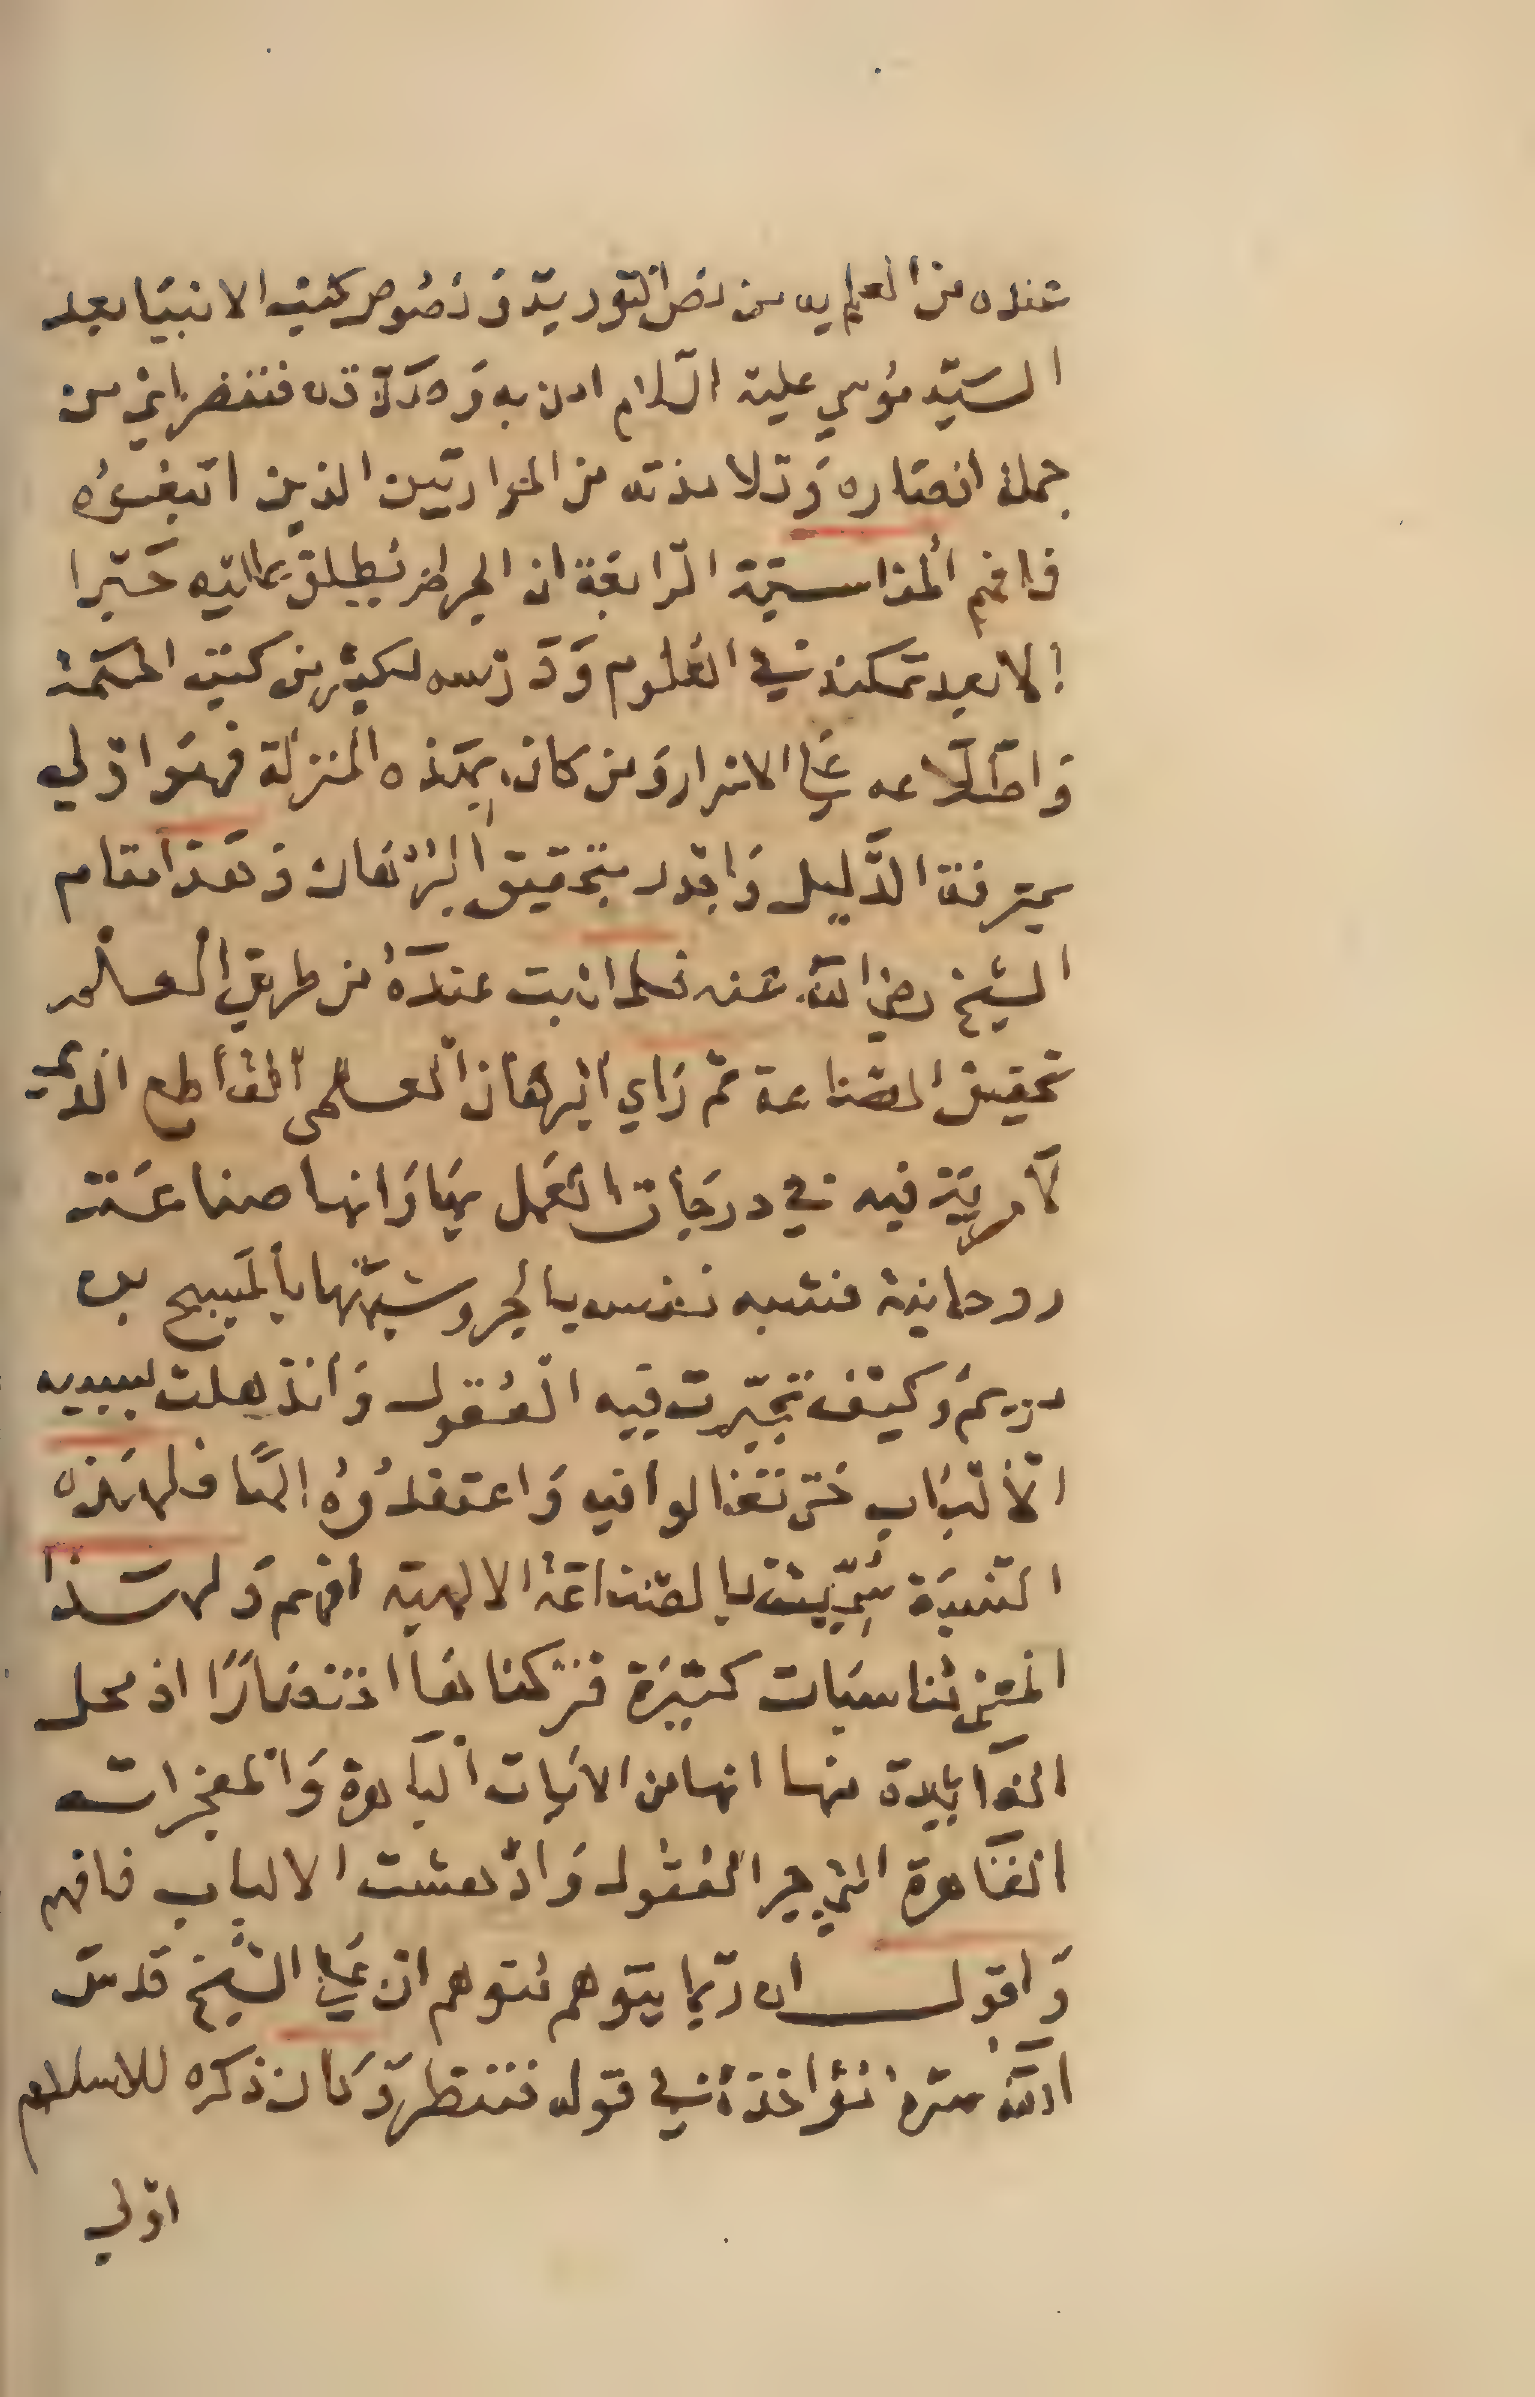 عنده من العلم به من نص التورية و نصوص كتب الانبيا بعد
السيد موسي عليه السلام امن به وصدقه فتنصر اي من
جملة انصاره وتلامذته من الحواريين الذين اتبعوه
فافهم المناسبة الرابعة ان الحبر لم يطلق عليه حبرا
الا بعد تمكنه في العلوم ودرسه لكثير من كتب الحكمة
واطلاعه علي الاسرار ومن كان بهذه المنزلة فهو اولي
بمعرفة الدليل واجدر بتحقيق البرهان وهذا مقام
الشيخ رضي الله عنه فلما ثبت عنده من طريق العلم
تحقيق الصناعة ثم راي البرهان العلمي القاطع الذي
لا مرية فيه في درجات العمل بها وانها صناعة
روحانية فشبه نفسه بالحبر وشبهها بالمسيح بن
مريم وكيف تحيرت فيه العقول وانذهلت لسببه
الالباب حتي تغالوا فيه واعتقدوه الها فلهذه
النسبة سميت بالصناعة الالهية افهم ولهذا
المعني مناسبات كثيرة تركناها اختصارا اذ محل
الفايدة منها انها من الايات الباهرة والمعجزات
القاهرة التي حير العقول وادهشت الالباب فافهم
واقول ان ربما يتوهم متوهم ان علي الشيخ قدس
الله سره مؤاخذة في قوله فتنصر وكان ذكره للاسلام
اولي